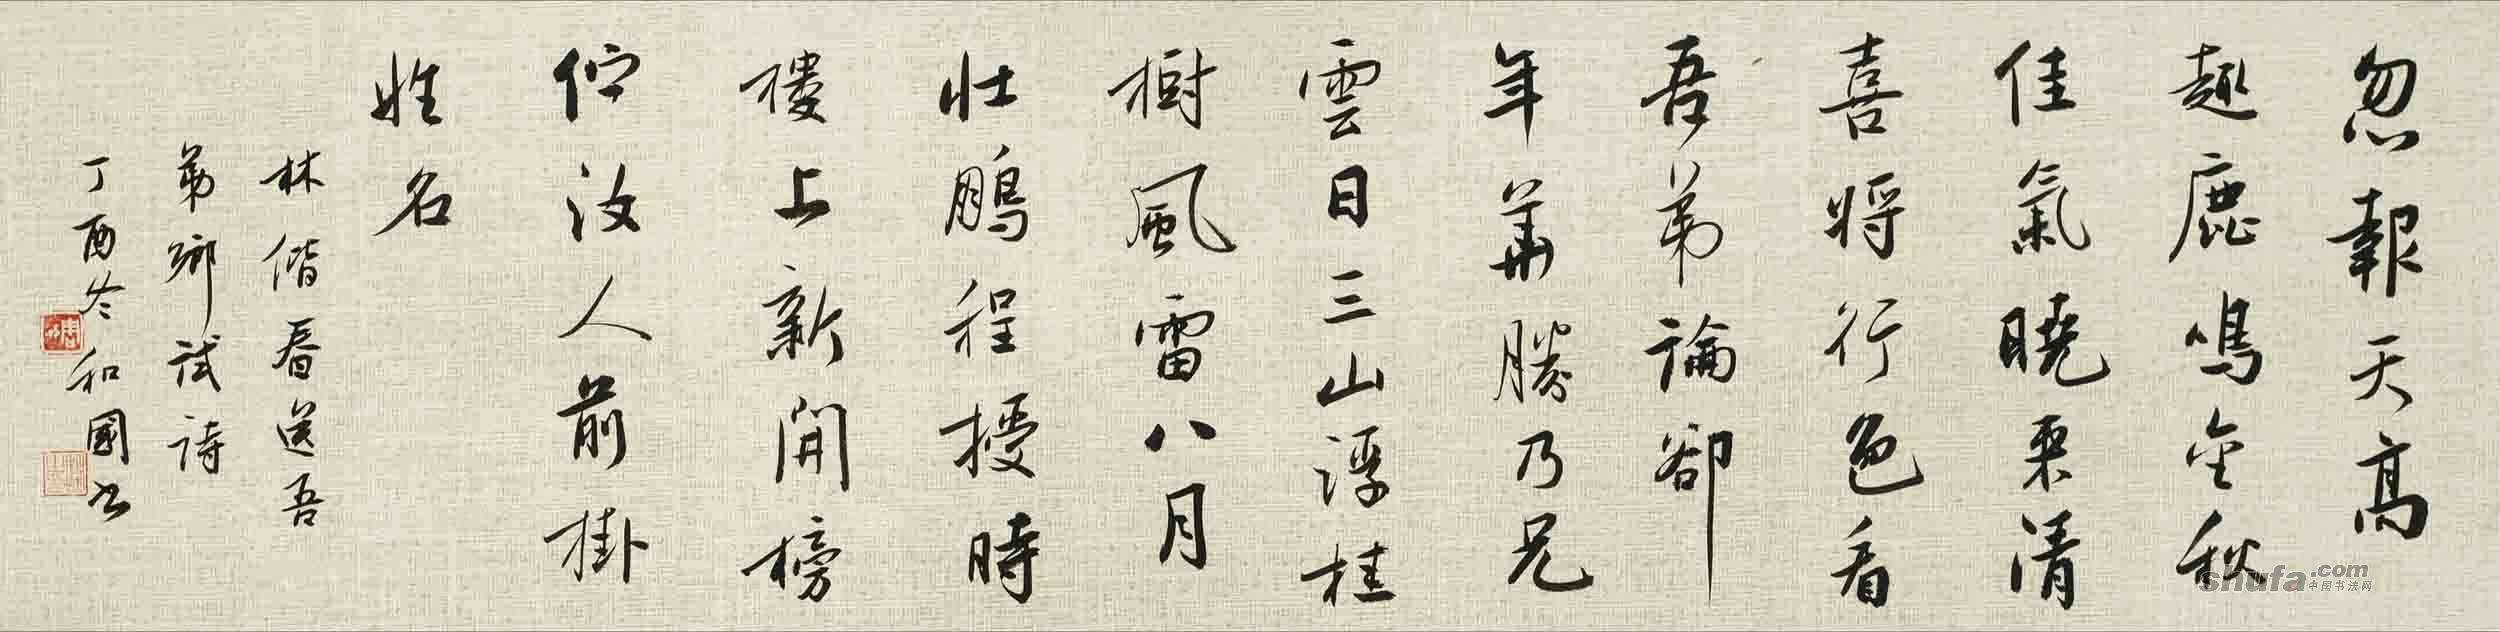 忽報天高
趣鹿鳴金秋
佳氣曉來清
喜將行色看
吾弟論卻
年華勝乃兄
雲日三山浮桂
樹風雷八月
壯鵬程擾時
樓上新開榜
佇汝人前掛
姓名
林偕春送吾
弟鄉試詩
丁酉冬和國書
shufa.com
中国书法网